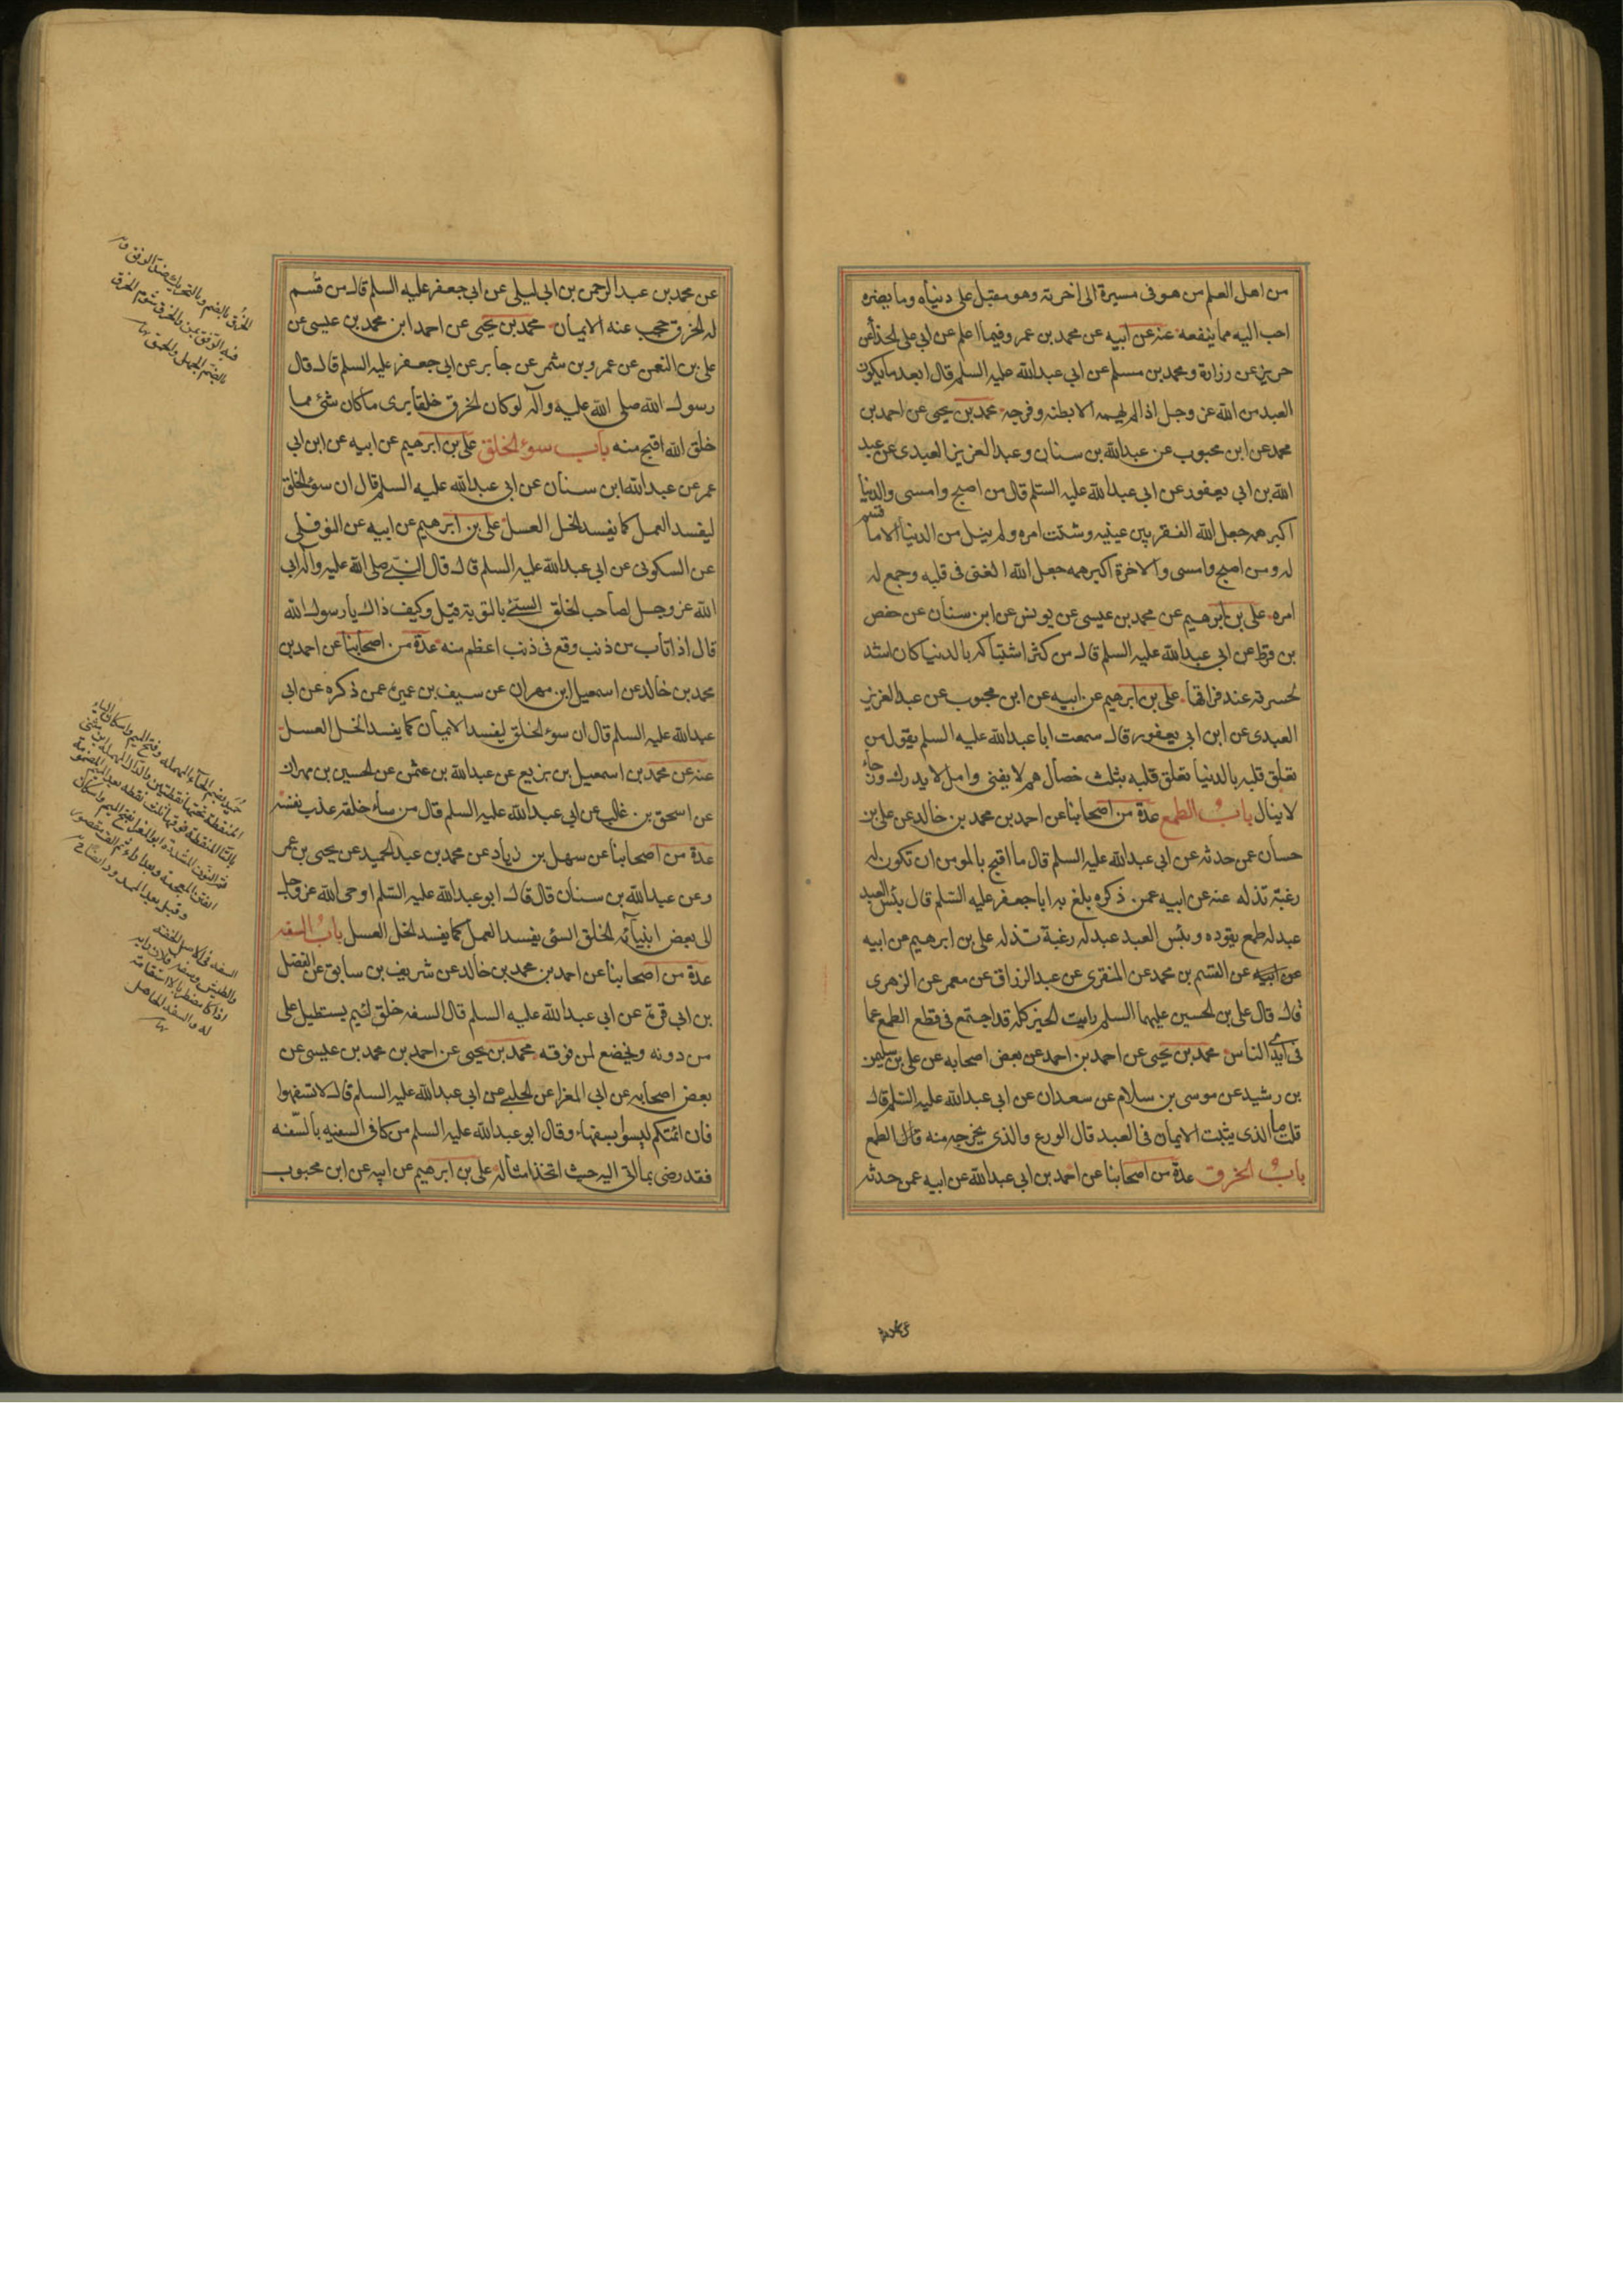 من اهل العلم من هو فى مسيرة الى اخرته وهو مقبل على دنياه وما يضره
احب اليه مما ينفعه عنه عن ابيه عن محمد بن عمر وفيما اعلم عن ابى على الحذا عن
حريز عن زرارة و محمد بن مسلم عن ابى عبدالله عليه السلم قال ابعد ما يكون
العبد من الله عز وجل اذا لم يهمه الا بطنه وفرجه محمد بن يحيى عن احمد بن
محمد عن ابن محبوب عن عبدالله بن سنان وعبد العزيز العبدى عن عبد
الله بن ابى يعفور عن ابى عبدالله عليه السلم قال من اصبح وامسى والدنيا
اكبر همه جعل الله الفقر بين عينيه وشتت امره ولم ينل من الدنيا الا ما قسم
له ومن اصبح وامسى والاخرة اكبر همه جعل الله الغنى فى قلبه وجمع له
امره على بن ابرهيم عن محمد بن عيسى عن يونس عن ابن سنان عن حفص
بن قرط عن ابى عبدالله عليه السلم قال من كثر اشتباكه بالدنيا كان اشد
لحسرته عند فراقها على بن ابرهيم عن ابيه عن ابن محبوب عن عبد العزيز
العبدى عن ابن ابى يعفور قال سمعت ابا عبدالله عليه السلم يقول من
تعلق قلبه بالدنيا تعلق قلبه بثلث خصال هم لا يفنى وامل لا يدرك ورجاء
لا ينال باب الطمع عدة من اصحابنا عن احمد بن محمد بن خالد عن على بن
حسان عمن حدثه عن ابى عبدالله عليه السلم قال ما اقبح بالمومن ان تكون له
رغبة تذله عنه عن ابيه عمن ذكره بلغ به ابا جعفر عليه السلم قال بئس العبد
عبد له طمع يقوده وبئس العبد عبد له رغبة تذله على بن ابرهيم عن ابيه
عن ابيه عن القسم بن محمد عن المنقرى عن عبدالرزاق عن معمر عن الزهرى
قال قال على بن الحسين عليهما السلم رايت الخير كله قد اجتمع فى قطع الطمع عما
فى ايدى الناس محمد بن يحيى عن احمد بن احمد عن بعض اصحابه عن على بن سليمن
بن رشيد عن موسى بن سلام عن سعدان عن ابى عبدالله عليه السلم قال
قلت ما الذى يثبت الايمان فى العبد قال الورع والذى يخرجه منه قال الطمع
باب الخرق عدة من اصحابنا عن احمد بن ابى عبدالله عن ابيه عمن حدثه
عن محمد بن عبدالرحمن بن ابى ليلى عن ابى جعفر عليه السلم قال من قسم
له الخرق حجب عنه الايمان محمد بن يحيى عن احمد ابن محمد بن عيسى عن
على بن النعمن عن عمرو بن شمر عن جابر عن ابى جعفر عليه السلم قال قال
رسول الله صلى الله عليه وآله لو كان الخرق خلقا يرى ما كان شئ مما
خلق الله اقبح منه باب سوء الخلق على بن ابرهيم عن ابيه عن ابن ابى
عمر عن عبدالله ابن سنان عن ابى عبدالله عليه السلم قال ان سوء الخلق
ليفسد العمل كما يفسد الخل العسل على بن ابرهيم عن ابيه عن النوفلى
عن السكونى عن ابى عبدالله عليه السلم قال قال النبى صلى الله عليه وآله ابى
الله عز وجل لصاحب الخلق السئ بالتوبة قيل وكيف ذاك يا رسول الله
قال اذا تاب من ذنب وقع فى ذنب اعظم منه عدة من اصحابنا عن احمد بن
محمد بن خالد عن اسمعيل ابن مهران عن سيف بن عميرة عمن ذكره عن ابى
عبدالله عليه السلم قال ان سوء الخلق ليفسد الايمان كما يفسد الخل العسل
عنه عن محمد بن اسمعيل بن بزيع عن عبدالله بن عثمن عن الحسين بن مهران
عن اسحق بن غالب عن ابى عبدالله عليه السلم قال من ساء خلقه عذب نفسه
عدة من اصحابنا عن سهل بن زياد عن محمد بن عبدالحميد عن يحيى بن عمر
وعن عبدالله بن سنان قال قال ابو عبدالله عليه السلم اوحى الله عز وجل
الى بعض انبيائه الخلق السئ يفسد العمل كما يفسد الخل العسل باب السفه
عدة من اصحابنا عن احمد بن محمد بن خالد عن شريف بن سابق عن الفضل
بن ابى قرة عن ابى عبدالله عليه السلم قال السفه خلق لئيم يستطيل على
من دونه ويخضع لمن فوقه محمد بن يحيى عن احمد بن محمد بن عيسى عن
بعض اصحابه عن ابى المغرا عن الحلبى عن ابى عبدالله عليه السلم قال لا تسفهوا
فان ائمتكم ليسوا بسفهاء وقال ابو عبدالله عليه السلم من كافى السفيه بالسفه
فقد رضى بما اتى اليه حيث احتذا مثاله على بن ابرهيم عن ابيه عن ابن محبوب
الخرق بالضم وبالتحريك ضد الرفق
فيه الرفق يمن والخرق شوم الخرق
بالضم الجهل والحمق
السفه فى الاصل الخفة
والطيش وسفه فلان رايه
اذا كان مضطربا لا استقامة
له والسفيه الجاهل